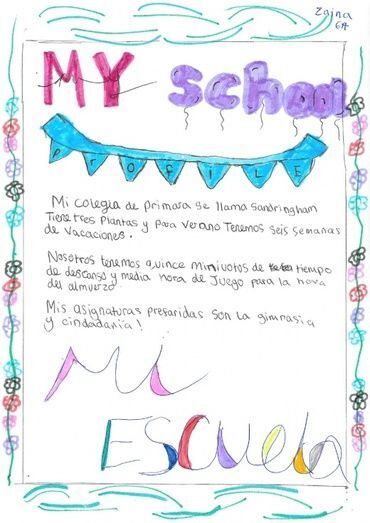 Zaina
6A
MY school
PROFILE
Mi colegia de primara se llama Sandringham
Tiene tres Plantas y para verano Tenemos seis semanas
de vacaciones.
Nosotros tenemos quince minivotos de tiempo
de descanso y media hora de Juego para la hora
del almuerzo
Mis asignaturas prefaridas son la gimnasia
y cindadania!
Mi
ESCUela